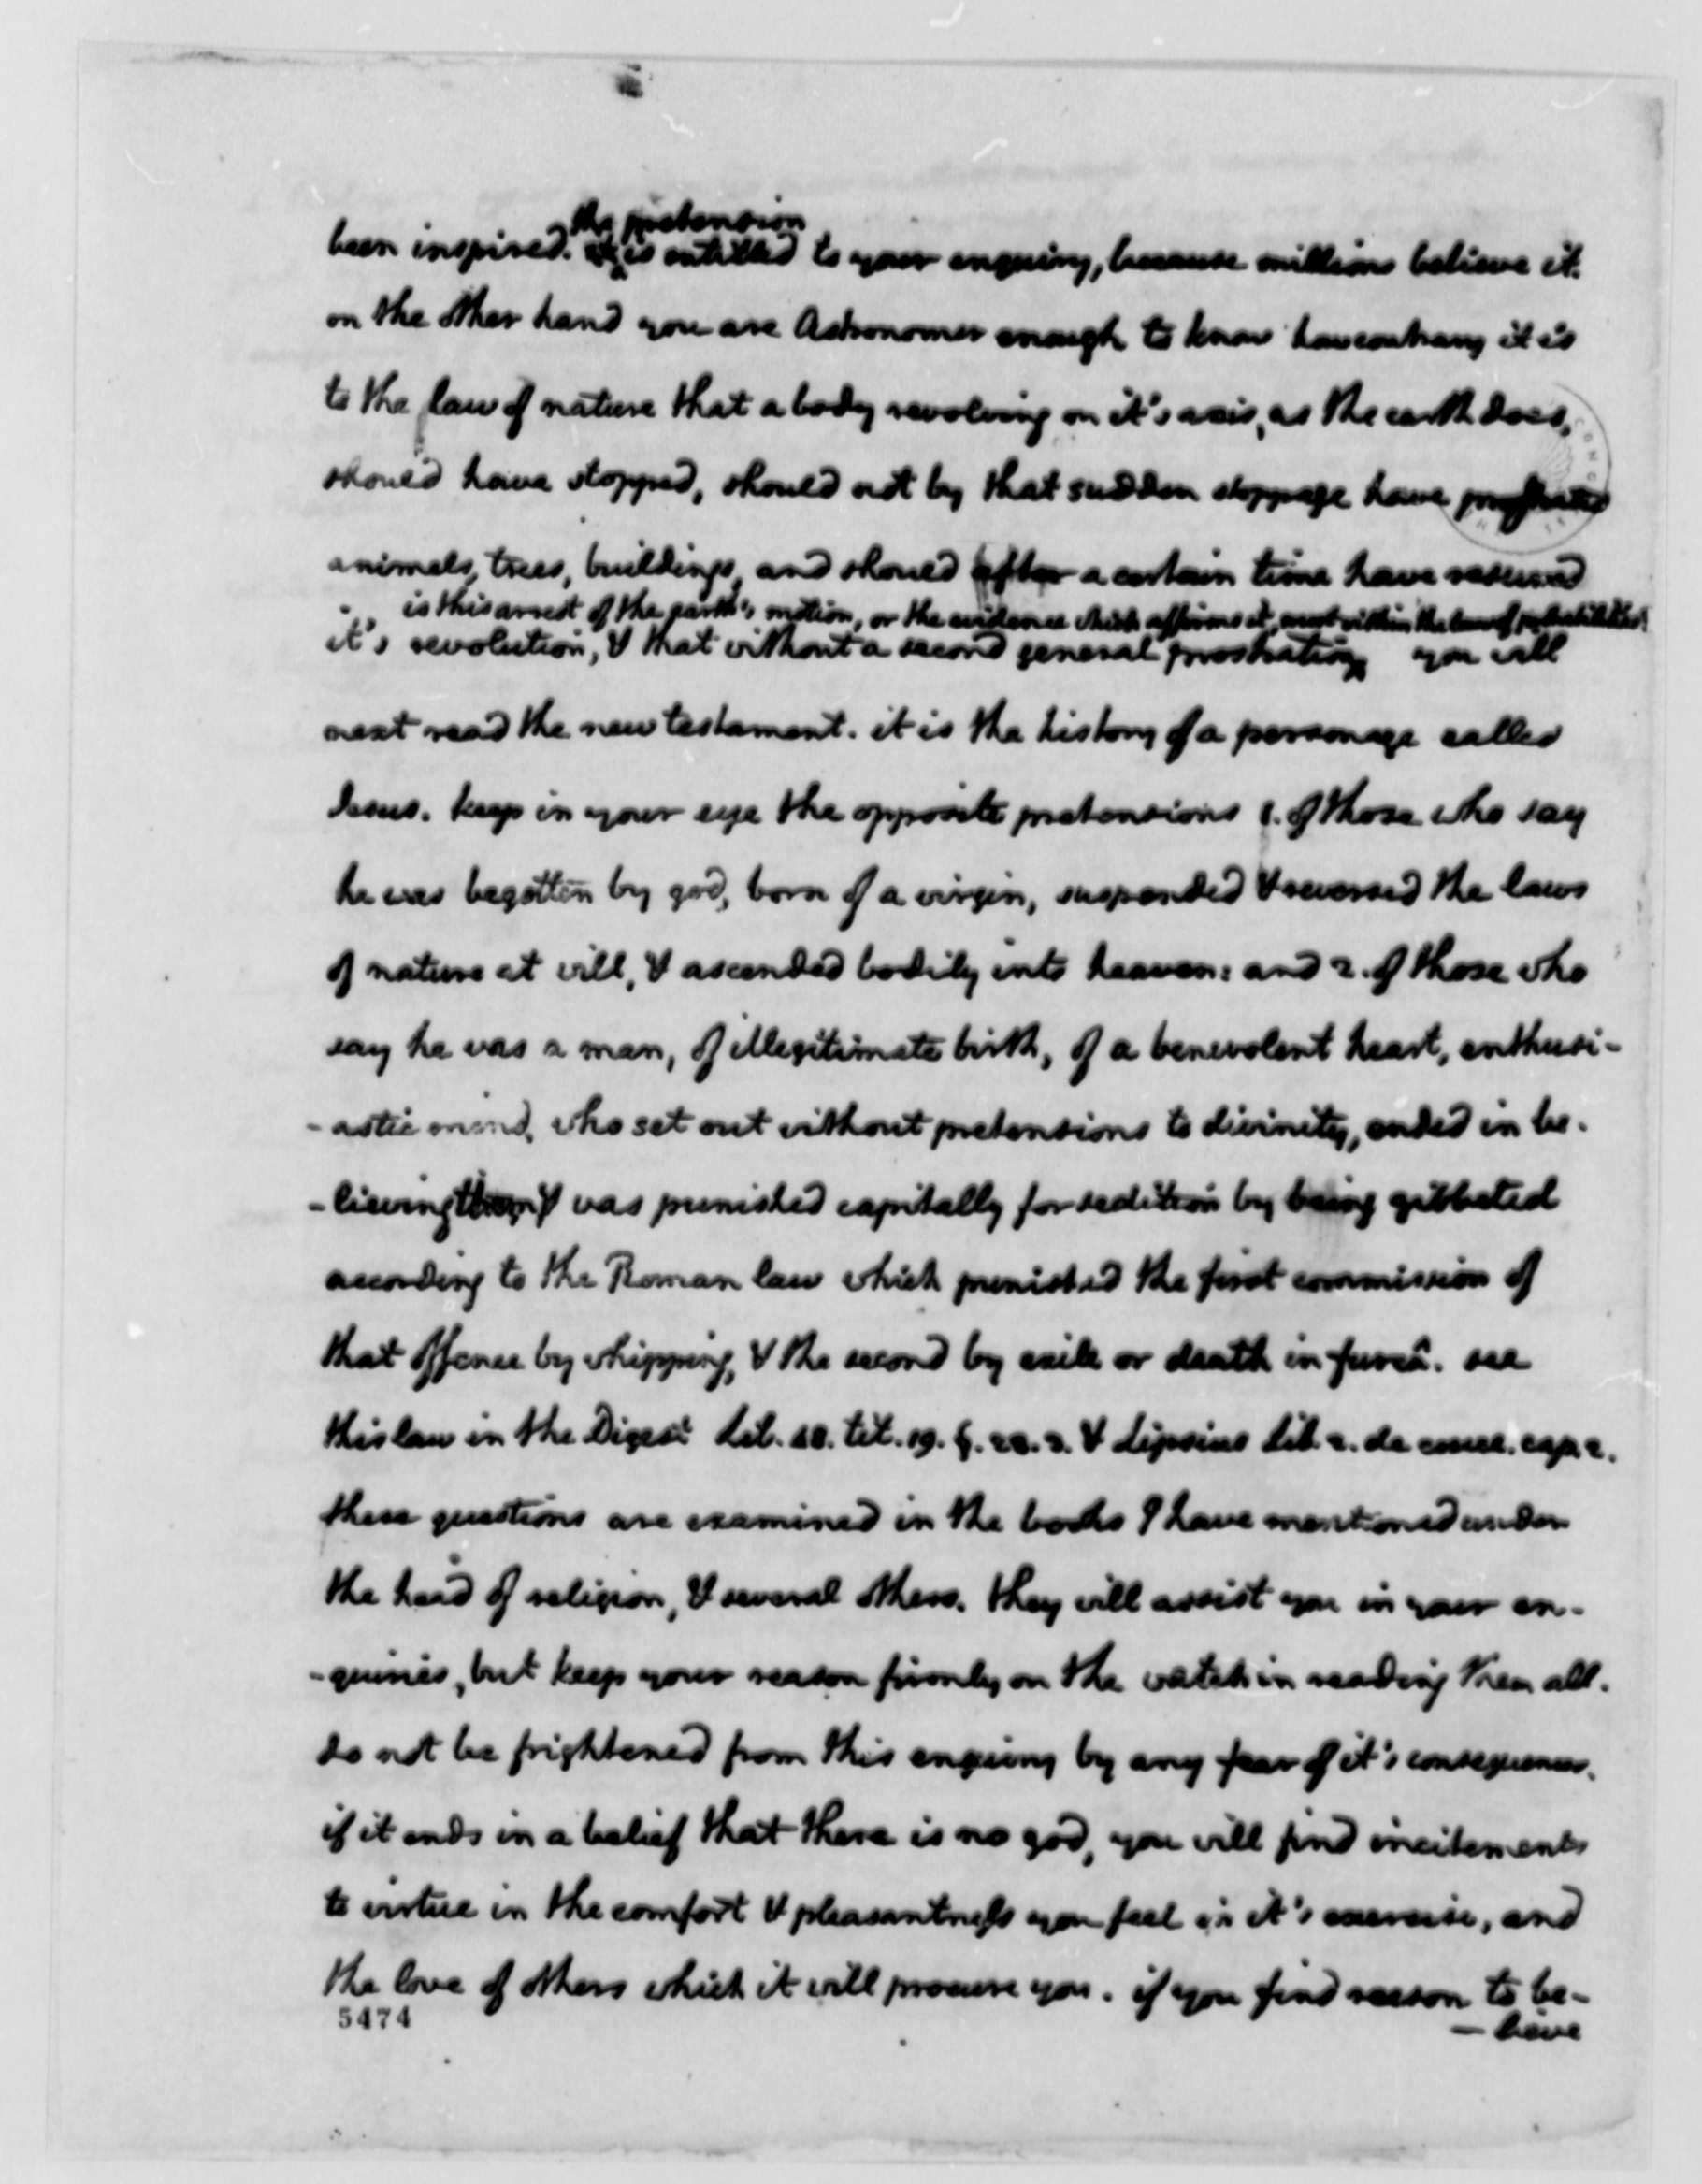 the pretension
been inspired. is entitled to your enquiry, because millions believe it.
on the other hand you are Astronomer enough to know how contrary it is
to the law of nature that a body revolving on it's axis, as the earth does,
should have stopped, should not by that sudden stoppage have prostrated
animals, trees, buildings, and should after a certain time have resumed
is this arrest of the earth's motion, or the evidence which affirms it, most within the law of probabilities?
it's revolution, & that without a second general prostration. you will
next read the new testament. it is the history of a personage called
Jesus. keep in your eye the opposite pretensions 1. of those who say
he was begotten by god, born of a virgin, suspended & reversed the laws
of nature at will, & ascended bodily into heaven: and 2. of those who
say he was a man, of illegitimate birth, of a benevolent heart, enthusi-
-astic mind, who set out without pretensions to divinity, ended in be-
-lieving them, & was punished capitally for sedition by being gibbeted
according to the Roman law which punished the first commission of
that offence by whipping, & the second by exile or death in furcâ. see
this law in the Digest Lib. 48. tit. 19. §. 28. 3. & Lipsius Lib. 2. de cruce. cap. 2.
these questions are examined in the books I have mentioned under
the head of religion, & several others. they will assist you in your en-
-quiries, but keep your reason firmly on the watch in reading them all.
do not be frightened from this enquiry by any fear of it's consequences.
if it ends in a belief that there is no god, you will find incitements
to virtue in the comfort & pleasantness you feel in it's exercise, and
the love of others which it will procure you. if you find reason to be-
5474
-lieve